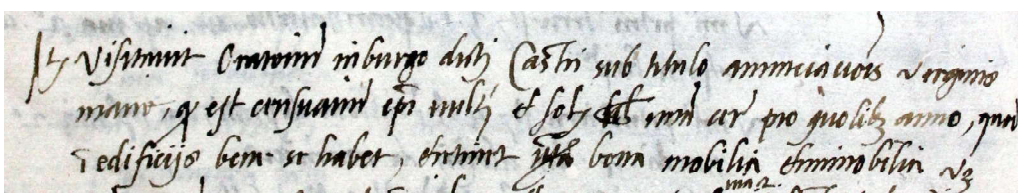 It visitavit Oratoriū in burgo dicti Castri sub titulo annunciacõis virginis
marie, qd est censuariū epi et solv unū cer pro quolibz anno, quod
in edificijs bene se habet, et tenet bona mobilia et immobilia vz